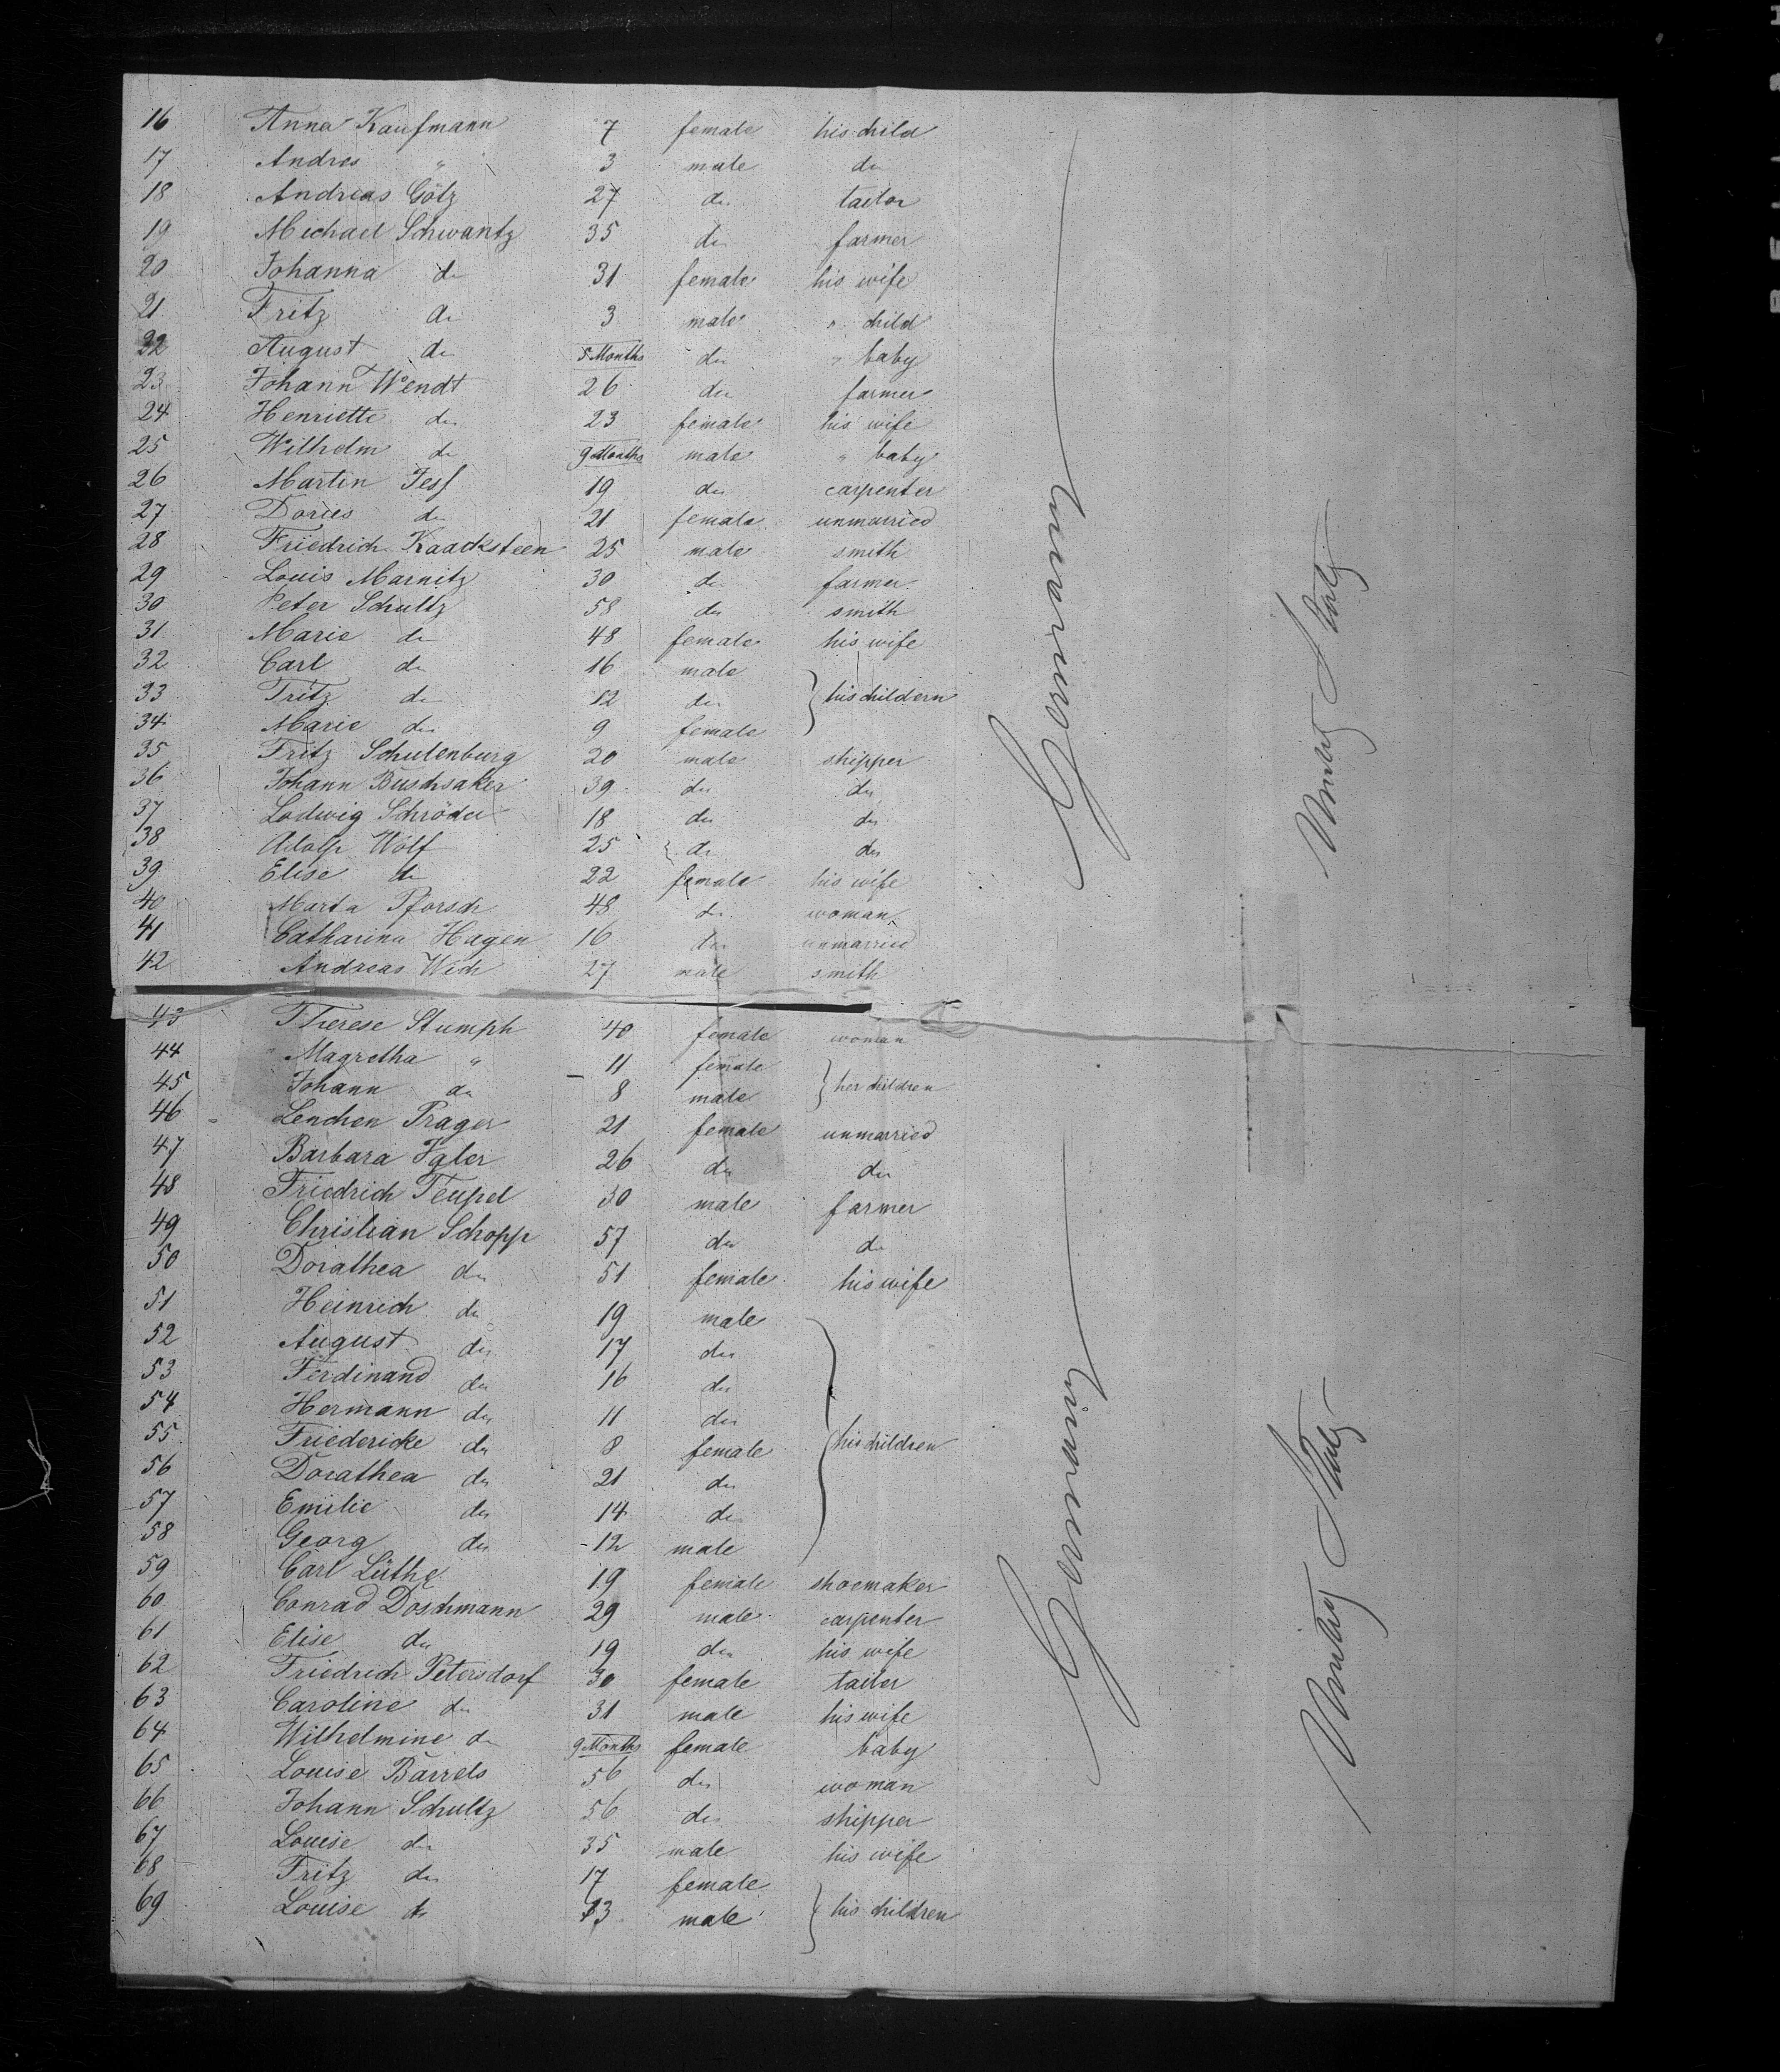 16 Anna Kaufmann 7 female his child
17 Andres " 3 male do
18 Andreas Götz 27 do tailor
19 Michael Schwantz 35 do farmer
20 Johanna do 31 female his wife
21 Fritz do 3 male " child
22 August do 5 Months do " baby
23 Johann Wendt 26 do farmer
24 Henriette do 23 female his wife
25 Wilhelm do 9 Months male " baby
26 Martin Jess 19 do carpenter
27 Dories do 21 female unmarried
28 Friedrich Kaacksteen 25 male smith
29 Louis Marnitz 30 do farmer
30 Peter Schultz 58 do smith
31 Marie do 48 female his wife
32 Carl do 16 male
33 Fritz do 12 do his childern
34 Marie do 9 female
35 Fritz Schulenburg 20 male shipper
36 Johann Buschsaker 39 do do
37 Lodwig Schröder 18 do do
38 Adolf Wolf 25 do do
39 Elise do 22 female his wife
40 Marta Pforsch 48 do woman
41 Catharina Hagen 16 do unmarried
42 Andreas Wich 27 male smith
Germany
United States
43 Therese Stumph 40 female woman
44 Magretha " 11 female
45 Johann do 8 male her children
46 Lenchen Prager 21 female unmarried
47 Barbara Igler 26 do do
48 Friedrich Teupel 30 male farmer
49 Christian Schopp 57 do do
50 Dorathea do 51 female his wife
51 Heinrich do 19 male
52 August do 17 do
53 Ferdinand do 16 do
54 Hermann do 11 do
55 Friedericke do 8 female his children
56 Dorathea do 21 do
57 Emilie do 14 do
58 Georg do 12 male
59 Carl Lüthe 19 female shoemaker
60 Conrad Doschmann 29 male carpenter
61 Elise do 19 do his wife
62 Friedrich Petersdorf 30 female tailor
63 Caroline do 31 male his wife
64 Wilhelmine do 9 Months female baby
65 Louise Barrels 56 do woman
66 Johann Schultz 56 do shipper
67 Louise do 35 male his wife
68 Fritz do 17 female
69 Louise do 13 male his children
Germany
United States